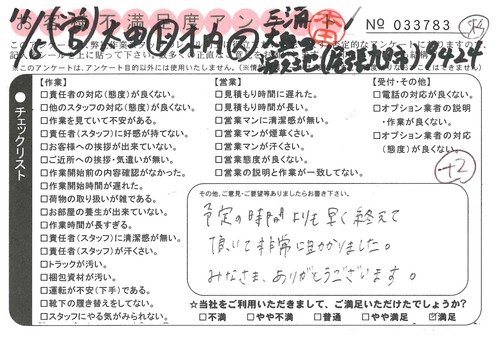 お客様不満足度アン
No 033783
チェックリスト
【作業】
□責任者の対応(態度)が良くない。
□他のスタッフの対応(態度)が良くない。
□作業を見ていて不安がある。
□責任者(スタッフ)に好感が持てない。
□お客様への挨拶が出来ていない。
□ご近所への挨拶・気遣いが無い。
□作業開始前の内容確認がなかった。
□作業開始時間が遅れた。
□荷物の取り扱いが雑である。
□お部屋の養生が出来ていない。
□作業時間が長すぎる。
□責任者(スタッフ)に清潔感が無い。
□責任者(スタッフ)が汗くさい。
□トラックが汚い。
□梱包資材が汚い。
□運転が不安(下手)である。
□靴下の履き替えをしてない。
□スタッフにやる気がみられない。
【営業】
□見積もり時間に遅れた。
□見積もり時間が長い。
□営業マンに清潔感が無い。
□営業マンが煙草くさい。
□営業マンが汗くさい。
□営業態度が良くない。
□営業の説明と作業が一致してない。
【受付・その他】
□電話の対応が良くない。
□オプション業者の説明
・作業が良くない。
□オプション業者の対応
(態度)が良くない。
+2
その他、ご意見・ご要望等ありましたらお書き下さい。
予定の時間よりも早く終えて
頂いて非常に助かりました。
みなさま、ありがとうございます。
☆当社をご利用いただきまして、ご満足いただけたでしょうか?
□不満 □やや不満 □普通 □やや満足 ☑満足